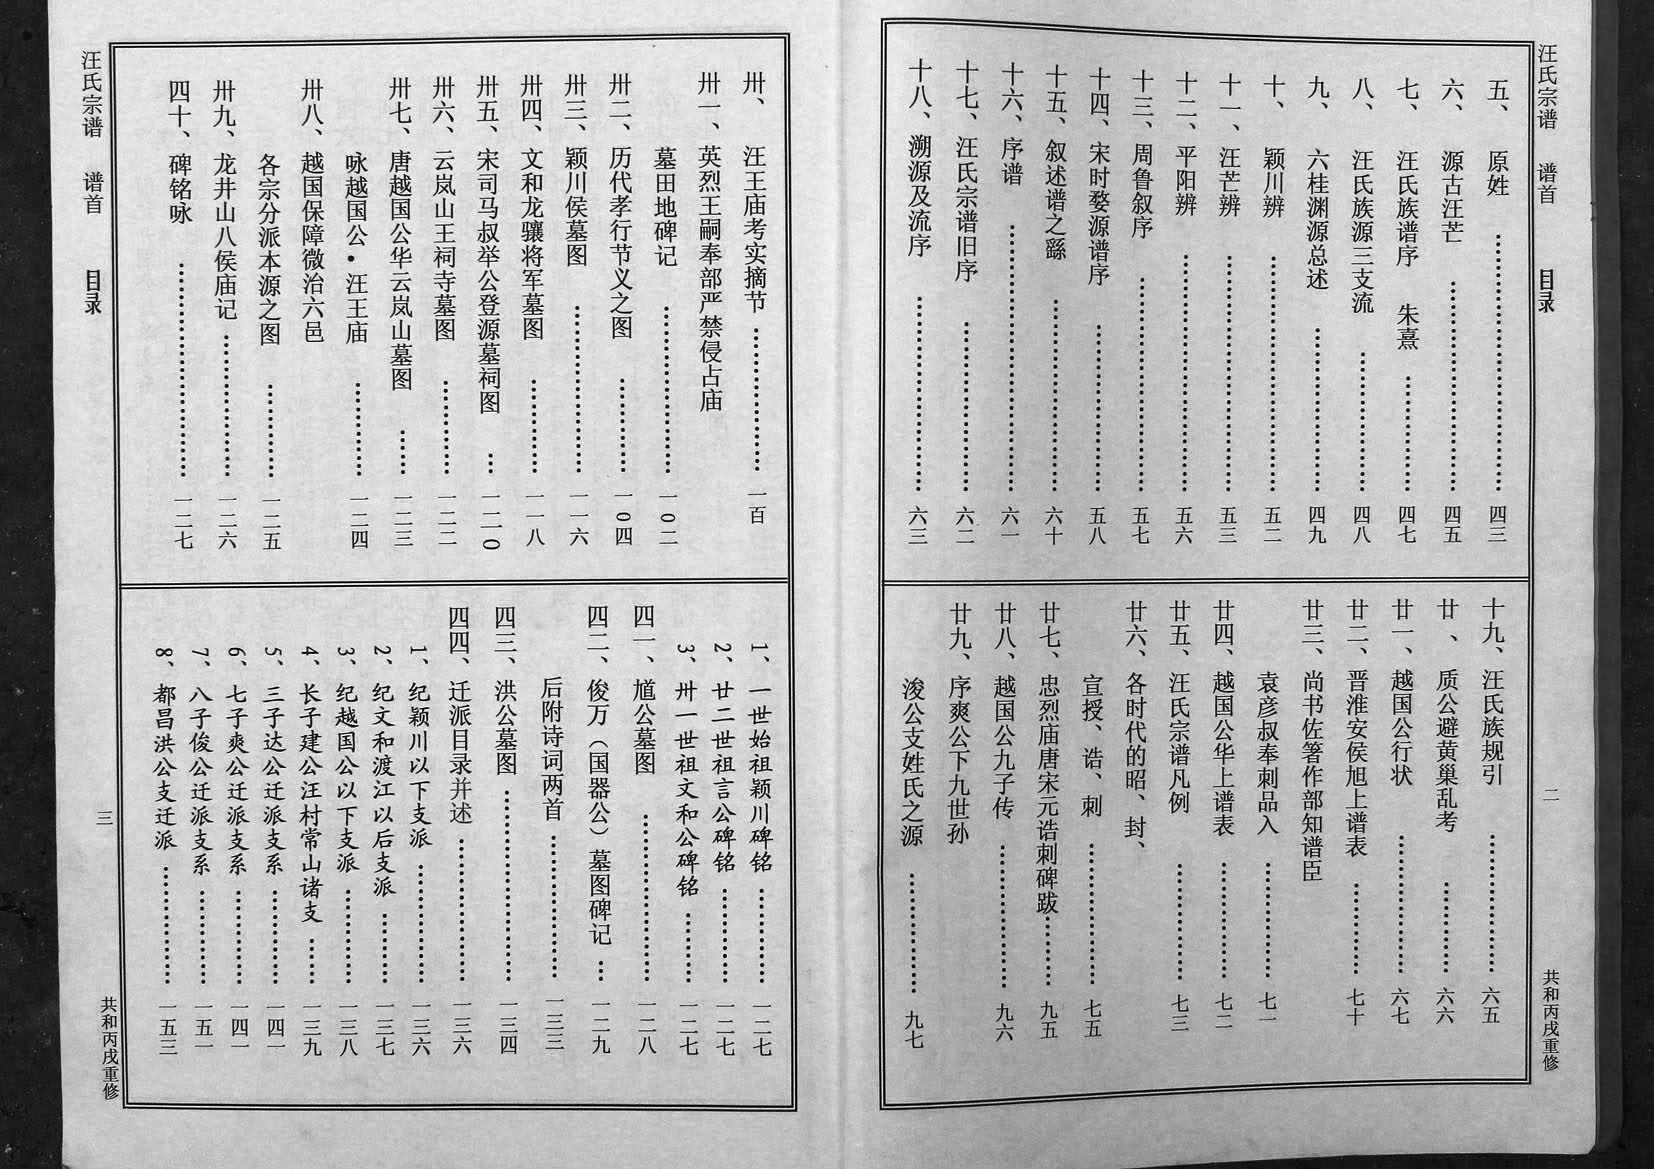 汪氏宗谱 谱首 目录 二 共和丙戌重修
五、原姓 四三
六、源古汪芒 四五
七、汪氏族谱序 朱熹 四七
八、汪氏族源三支流 四八
九、六桂渊源总述 四九
十、颖川辨 五二
十一、汪芒辨 五三
十二、平阳辨 五六
十三、周鲁叙序 五七
十四、宋时婺源谱序 五八
十五、叙述谱之繇 六十
十六、序谱 六一
十七、汪氏宗谱旧序 六二
十八、溯源及流序 六三
十九、汪氏族规引 六五
廿、质公避黄巢乱考 六六
廿一、越国公行状 六七
廿二、晋淮安侯旭上谱表 七十
廿三、尚书佐箸作部知谱臣
袁彦叔奉刺品入 七一
廿四、越国公华上谱表 七二
廿五、汪氏宗谱凡例 七三
廿六、各时代的昭、封、
宣授、诰、刺 七五
廿七、忠烈庙唐宋元诰刺碑跋 九五
廿八、越国公九子传 九六
廿九、序爽公下九世孙
浚公支姓氏之源 九七
卅、汪王庙考实摘节 一百
卅一、英烈王嗣奉部严禁侵占庙
墓田地碑记 一0二
卅二、历代孝行节义之图 一0四
卅三、颖川侯墓图 一一六
卅四、文和龙骧将军墓图 一一八
卅五、宋司马叔举公登源墓祠图 一二0
卅六、云岚山王祠寺墓图 一二二
卅七、唐越国公华云岚山墓图 一二三
咏越国公•汪王庙 一二四
卅八、越国保障微治六邑
各宗分派本源之图 一二五
卅九、龙井山八侯庙记 一二六
四十、碑铭咏 一二七
1、一世始祖颖川碑铭 一二七
2、廿二世祖言公碑铭 一二七
3、卅一世祖文和公碑铭 一二七
四一、馗公墓图 一二八
四二、俊万（国器公）墓图碑记 一二九
后附诗词两首 一三三
四三、洪公墓图 一三四
四四、迁派目录并述 一三六
1、纪颖川以下支派 一三六
2、纪文和渡江以后支派 一三七
3、纪越国公以下支派 一三八
4、长子建公汪村常山诸支 一三九
5、三子达公迁派支系 一四一
6、七子爽公迁派支系 一四一
7、八子俊公迁派支系 一五一
8、都昌洪公支迁派 一五三
汪氏宗谱 谱首 目录 三 共和丙戌重修